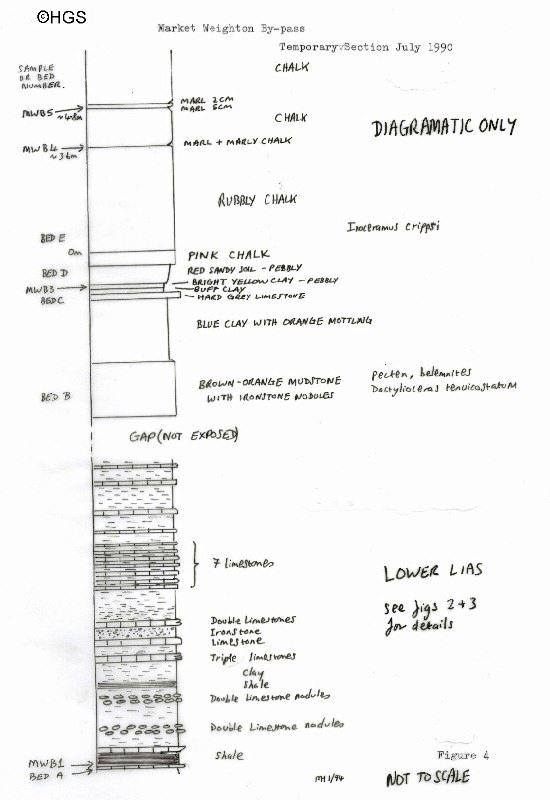 ©HGS
Market Weighton By-pass
Temporary Section July 1990
SAMPLE
OR BED
NUMBER.
CHALK
MARL 2CM
MARL 5CM
MWB5
~4.8m
CHALK
DIAGRAMATIC ONLY
MWB4
~3.6m
MARL + MARLY CHALK
RUBBLY CHALK
Inoceramus crippsi
BED E
0m
PINK CHALK
BED D
RED SANDY SOIL - PEBBLY
BRIGHT YELLOW CLAY - PEBBLY
MWB3
BUFF CLAY
BED C
HARD GREY LIMESTONE
BLUE CLAY WITH ORANGE MOTTLING
BROWN-ORANGE MUDSTONE
WITH IRONSTONE NODULES
Pecten, belemnites
Dactylioceras tenuicostatum
BED B
GAP (NOT EXPOSED)
7 limestones
LOWER LIAS
see figs 2+3
for details
Double Limestones
Ironstone
Limestone
Triple limestones
Clay
Shale
Double Limestone nodules
Double Limestone nodules
Shale
Figure 4
MWB1
BED A
MH 1/94
NOT TO SCALE